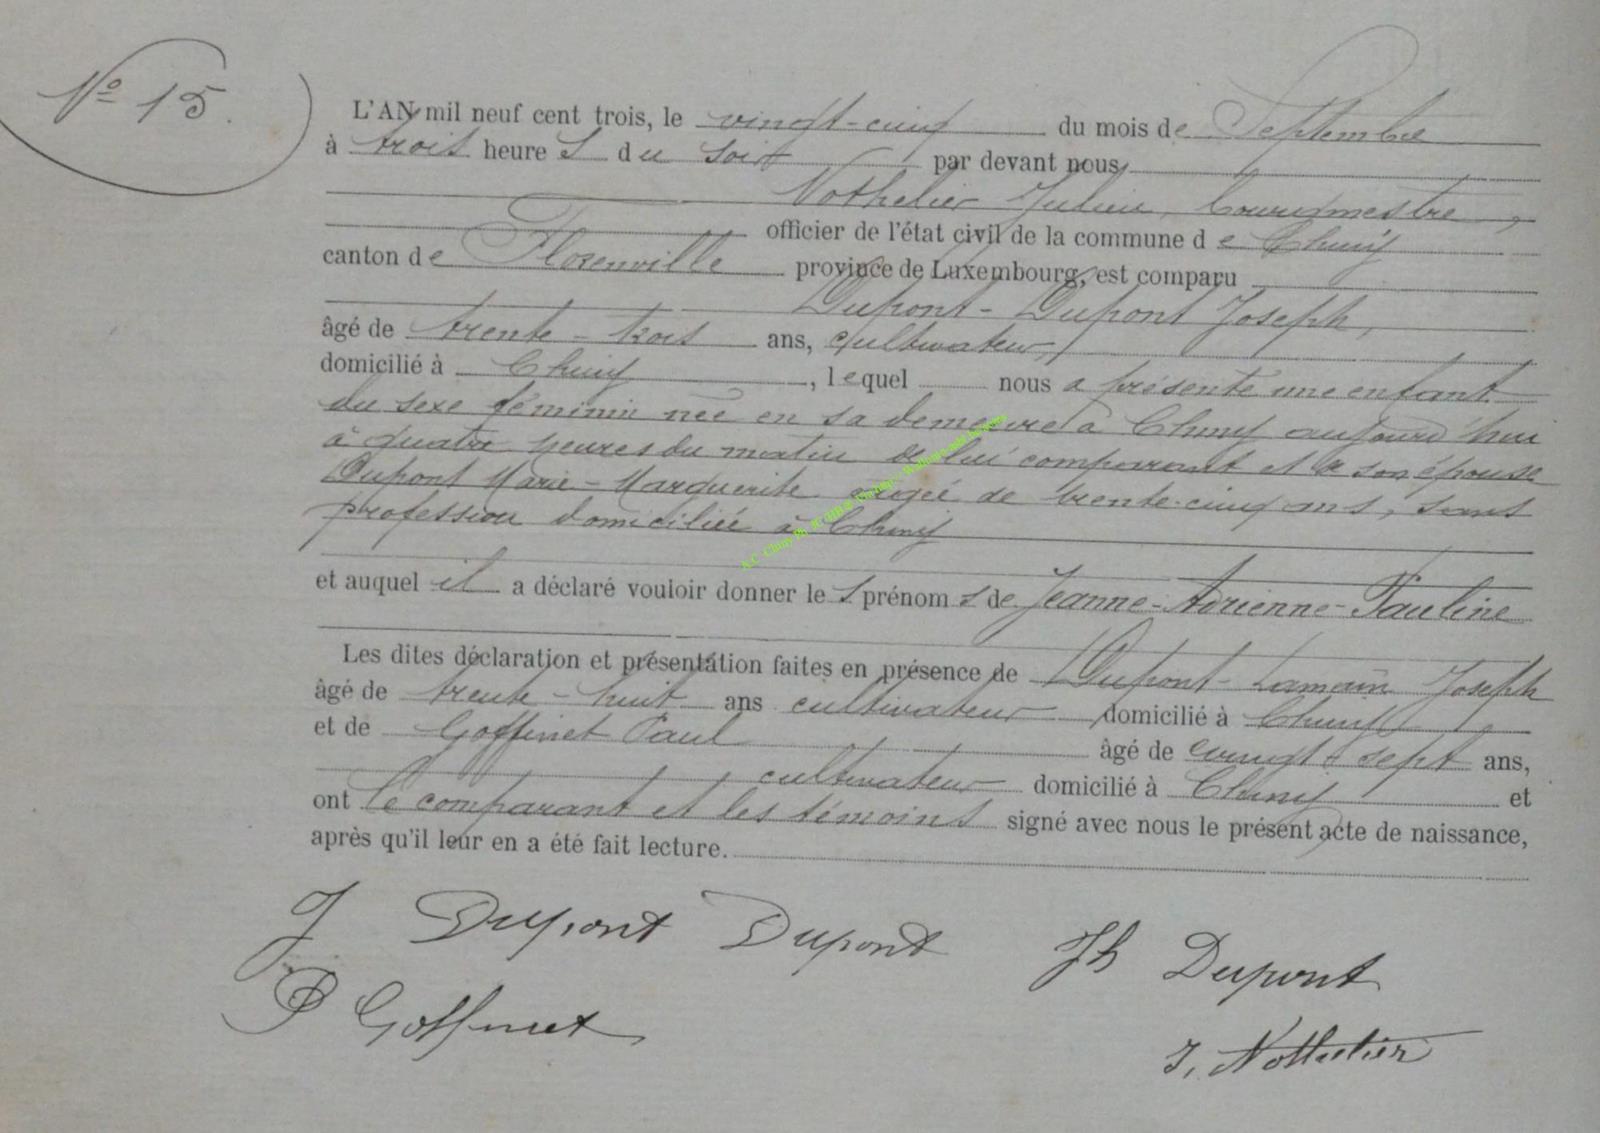 No 15.
L'AN mil neuf cent trois, le vingt-cinq du mois de Septembre
à trois heures du soir par devant nous,
Nothelier Julien, bourgmestre,
officier de l'état civil de la commune de Chiny
canton de Florenville province de Luxembourg, est comparu
Dupont-Dupont Joseph,
âgé de trente-trois ans, cultivateur,
domicilié à Chiny, lequel nous a présenté une enfant
du sexe féminin née en sa demeure à Chiny aujourd'hui
à quatre heures du matin de lui comparant et de son épouse
Dupont Marie-Marguerite âgée de trente-cinq ans, sans
profession domiciliée à Chiny
et auquel il a déclaré vouloir donner les prénoms de Jeanne-Adrienne-Pauline
Les dites déclaration et présentation faites en présence de Dupont-Lamain Joseph
âgé de trente-huit ans cultivateur domicilié à Chiny
et de Goffinet Paul âgé de vingt sept ans,
cultivateur domicilié à Chiny et
ont le comparant et les témoins signé avec nous le présent acte de naissance,
après qu'il leur en a été fait lecture.
J Dupont Dupont Jh Dupont
P Goffinet
J. Nothelier